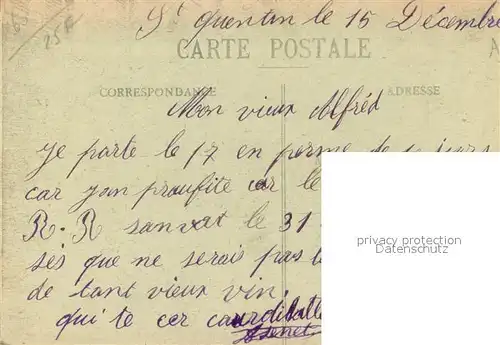 25F
St Quentin le 15 Décembre
CARTE POSTALE
CORRESPONDANCE
ADRESSE
Mon vieux Alfred
Je parte le 17 en perme de jours
car jan proufite car le
R.R sanvat le 31
sés que ne serais pas
de tant vieux vin.
qui te cer
privacy protection
Datenschutz